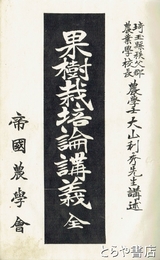 埼玉縣秩父郡
農業學校長
農學士大山利秀先生講述
果樹栽培論講義 全
帝國農學會
とらや書店